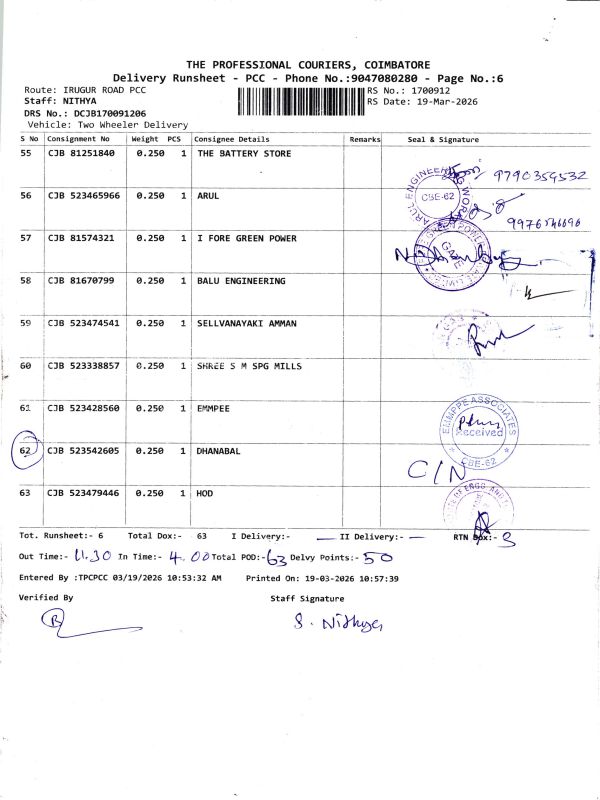 THE PROFESSIONAL COURIERS, COIMBATORE
Delivery Runsheet - PCC - Phone No.:9047080280 - Page No.:6
Route: IRUGUR ROAD PCC RS No.: 1700912
Staff: NITHYA RS Date: 19-Mar-2026
DRS No.: DCJB170091206
Vehicle: Two Wheeler Delivery
S No Consignment No Weight PCS Consignee Details Remarks Seal & Signature
55 CJB 81251840 0.250 1 THE BATTERY STORE 9790359532
56 CJB 523465966 0.250 1 ARUL ARUL ENGINEERING WORKS CBE-62
57 CJB 81574321 0.250 1 I FORE GREEN POWER
58 CJB 81670799 0.250 1 BALU ENGINEERING
59 CJB 523474541 0.250 1 SELLVANAYAKI AMMAN
60 CJB 523338857 0.250 1 SHREE S M SPG MILLS
61 CJB 523428560 0.250 1 EMMPEE EMMPPE ASSOCIATES Received CBE-62
62 CJB 523542605 0.250 1 DHANABAL C/N
63 CJB 523479446 0.250 1 HOD
Tot. Runsheet:- 6 Total Dox:- 63 I Delivery:- — II Delivery:- — RTN Dox:- 3
Out Time:- 11.30 In Time:- 4.00 Total POD:- 63 Delvy Points:- 50
Entered By :TPCPCC 03/19/2026 10:53:32 AM Printed On: 19-03-2026 10:57:39
Verified By Staff Signature
S. Nithya